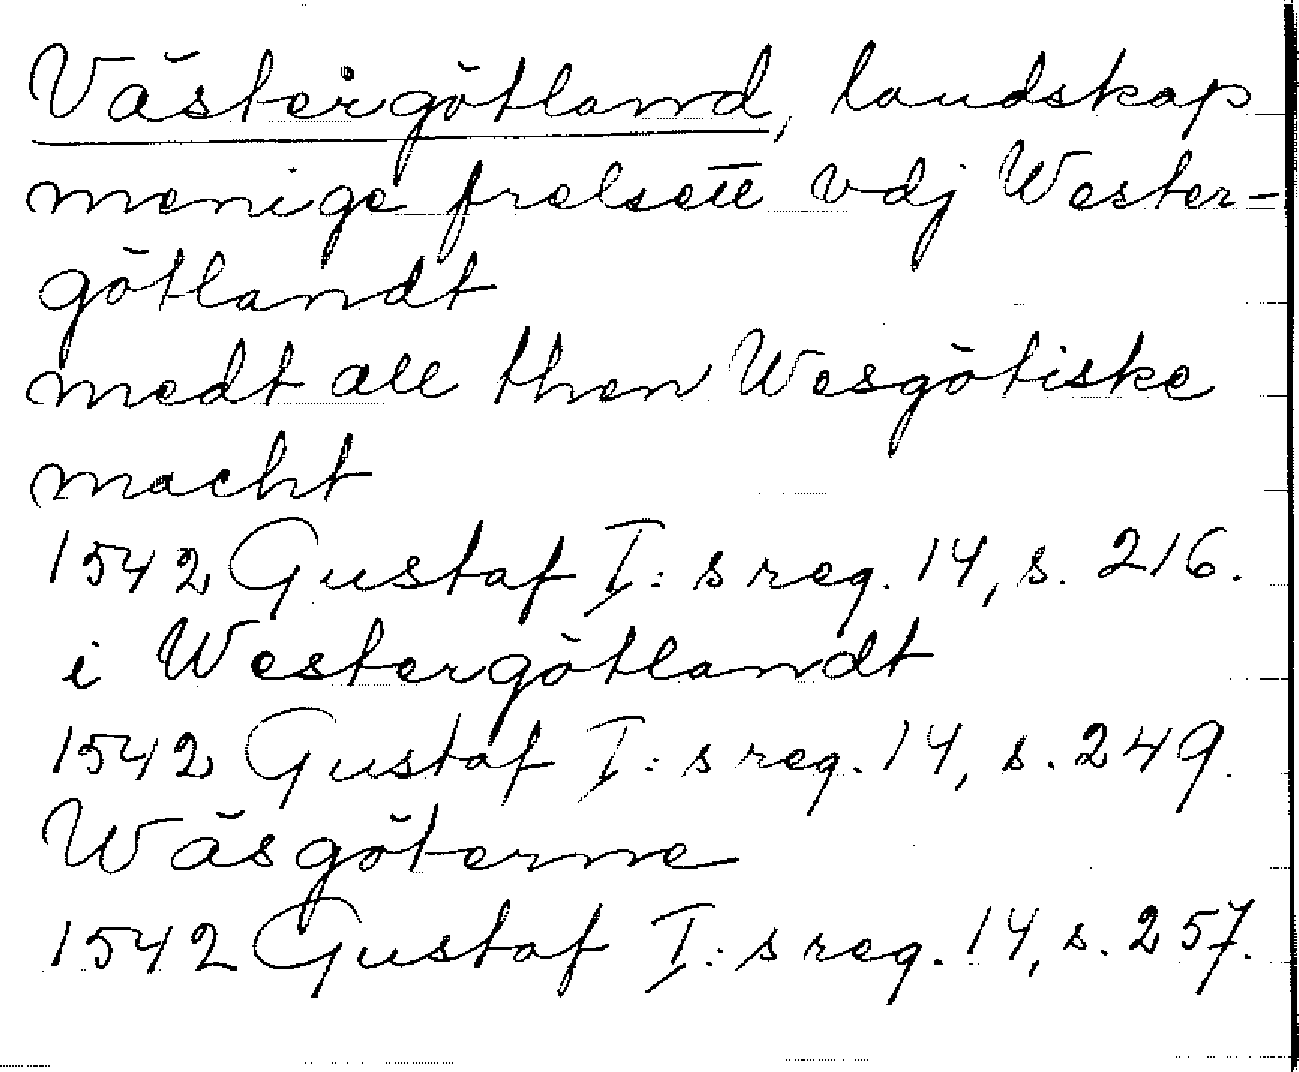 Västergötland, landskap
menige frelsett vdj Wester-
götlandt
medt all then Wesgötiske
macht
1542 Gustaf I:s reg. 14, s. 216.
i Westergötlandt
1542 Gustaf I:s reg. 14, s. 249.
Wäsgöterne
1542 Gustaf I:s reg. 14, s. 257.